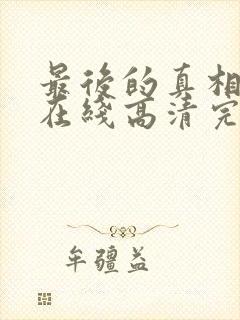 最後的真相
在綫高清完
牟疆益